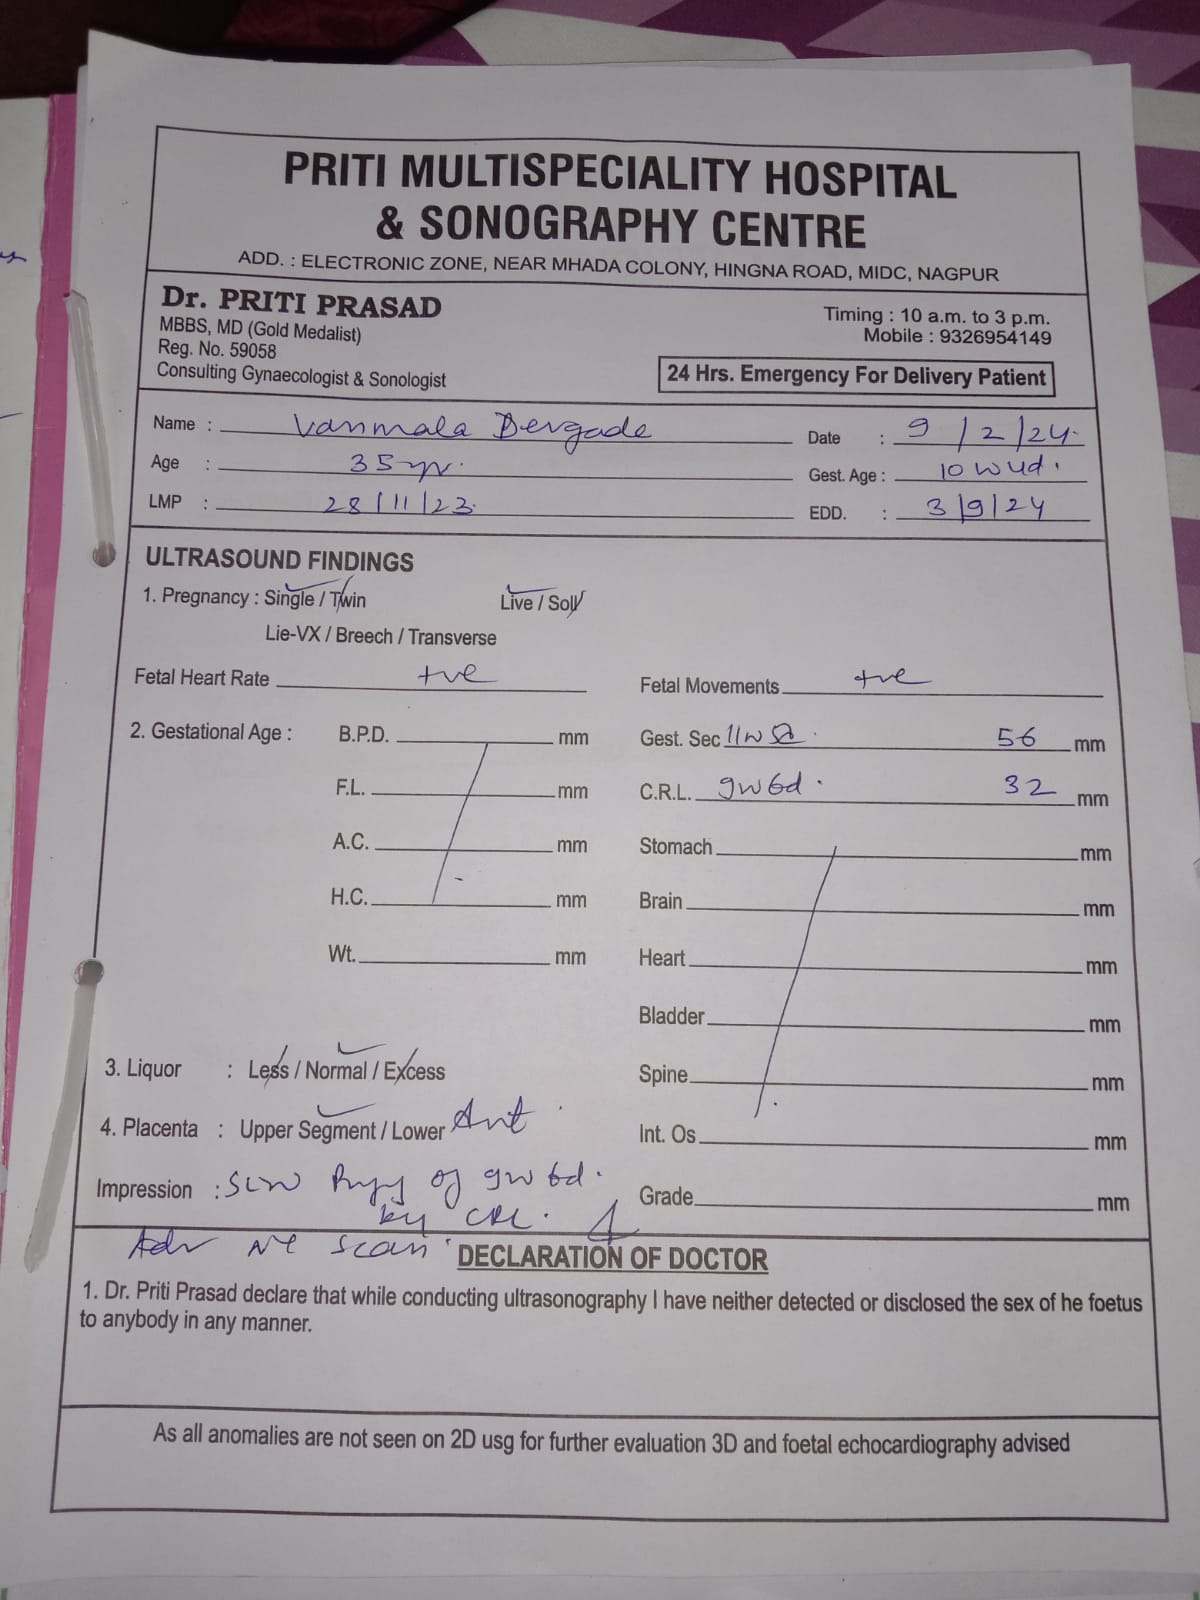 PRITI MULTISPECIALITY HOSPITAL
& SONOGRAPHY CENTRE
ADD. : ELECTRONIC ZONE, NEAR MHADA COLONY, HINGNA ROAD, MIDC, NAGPUR
Dr. PRITI PRASAD
MBBS, MD (Gold Medalist)
Reg. No. 59058
Consulting Gynaecologist & Sonologist
Timing : 10 a.m. to 3 p.m.
Mobile : 9326954149
24 Hrs. Emergency For Delivery Patient
Name : Vanmala Dergade Date : 9/2/24.
Age : 35 yr. Gest. Age : 10 w 4d.
LMP : 28/11/23. EDD. : 3/9/24
ULTRASOUND FINDINGS
1. Pregnancy : Single / Twin Live / Soll
Lie-VX / Breech / Transverse
Fetal Heart Rate +ve Fetal Movements +ve
2. Gestational Age : B.P.D. mm Gest. Sec 11w 56 mm
F.L. mm C.R.L. 9w6d. 32 mm
A.C. mm Stomach mm
H.C. mm Brain mm
Wt. mm Heart mm
Bladder mm
3. Liquor : Less / Normal / Excess Spine mm
4. Placenta : Upper Segment / Lower Ant Int. Os mm
Impression : of 9w 6d. Grade mm
by CRL.
Adv NT scan
DECLARATION OF DOCTOR
1. Dr. Priti Prasad declare that while conducting ultrasonography I have neither detected or disclosed the sex of he foetus
to anybody in any manner.
As all anomalies are not seen on 2D usg for further evaluation 3D and foetal echocardiography advised